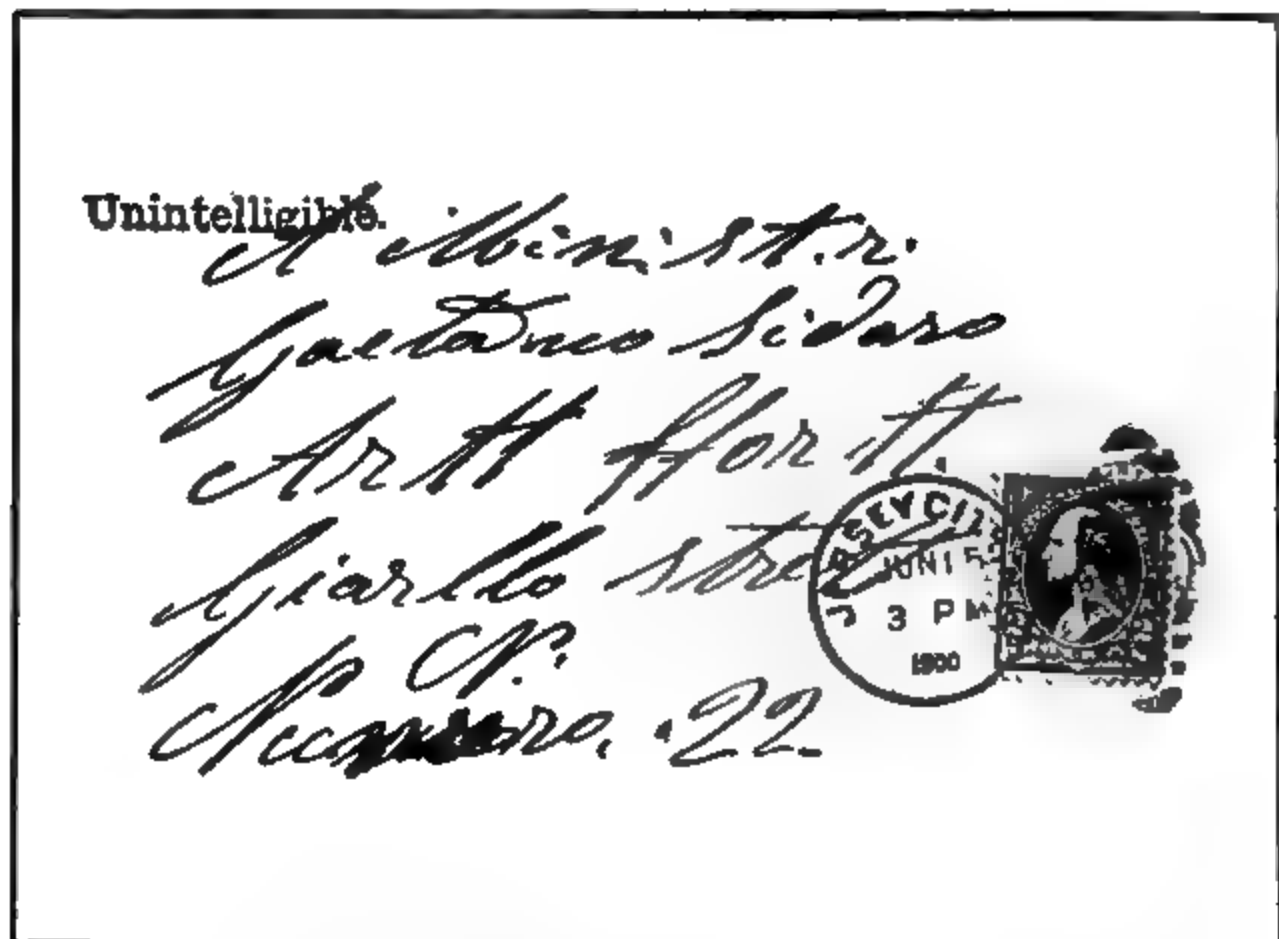 Unintelligible.
A Minist.r.
Gaetano Sidaro
Artt ffor tt.
Giarllo street
N.
Numero. 22
JERSEY CITY
JUN 15
3 PM
1900